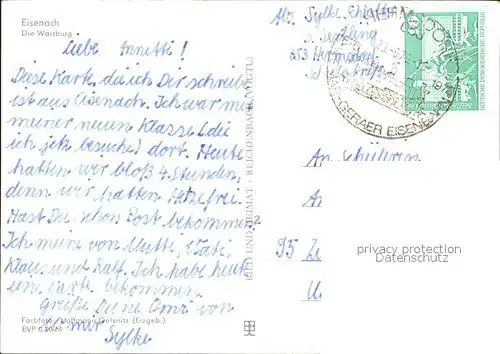 Eisenach
Die Wartburg
Liebe Annetti!
Diese Karte, die ich Dir schreibe
ist aus Eisenach. Ich war mit
meiner neuen Klasse (die
ich jetz besuche) dort. Heute
hatten wir bloß 4 Stunden,
denn wir hatten Hitzefrei.
Hast Du schon Post bekommen?
Ich mein von Mutti, Vati,
Klaus und Ralf. Ich habe heut
eine Karte bekommen.
Grüße Deine Omi von
mir
Sylke
Farbfoto: Hoffmann (Erzgeb.)
EVP 0,20 M
BILD UND HEIMAT REICHENBACH (VOGTL)
Abs. Sylke
653 Hermsdorf
GERAER
DEUTSCHE DEMOKRATISCHE REPUBLIK
An Schülerin
A
95 Z
U
privacy protection
Datenschutz